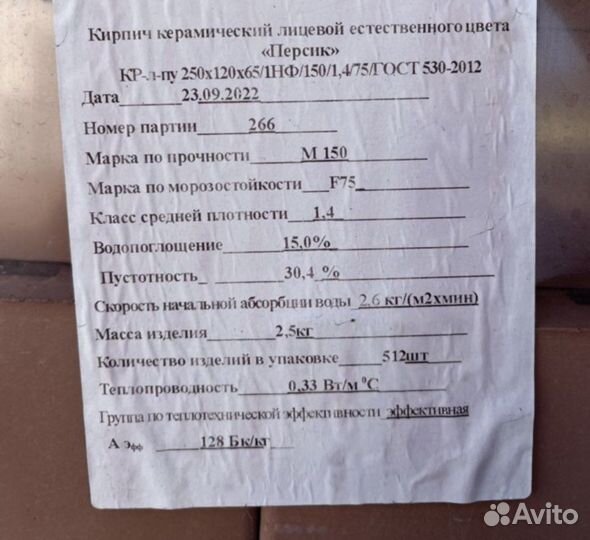 Кирпич керамический лицевой естественного цвета
«Персик»
КР-л-пу 250х120х65/1НФ/150/1,4/75/ГОСТ 530-2012
Дата 23.09.2022
Номер партии 266
Марка по прочности М 150
Марка по морозостойкости F75
Класс средней плотности 1,4
Водопоглощение 15,0%
Пустотность 30,4 %
Скорость начальной абсорбции воды 2,6 кг/(м2хмин)
Масса изделия 2,5кг
Количество изделий в упаковке 512шт
Теплопроводность 0,33 Вт/м ⁰С
Группа по теплотехнической эффективности эффективная
А эфф 128 Бк/кг
Avito